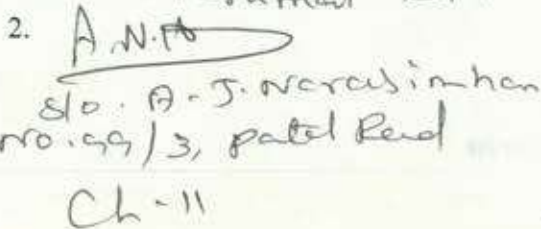 2. A.N.A
S/o. A. J. Narasimhan
No. 99/3, Patel Road
Ch-11